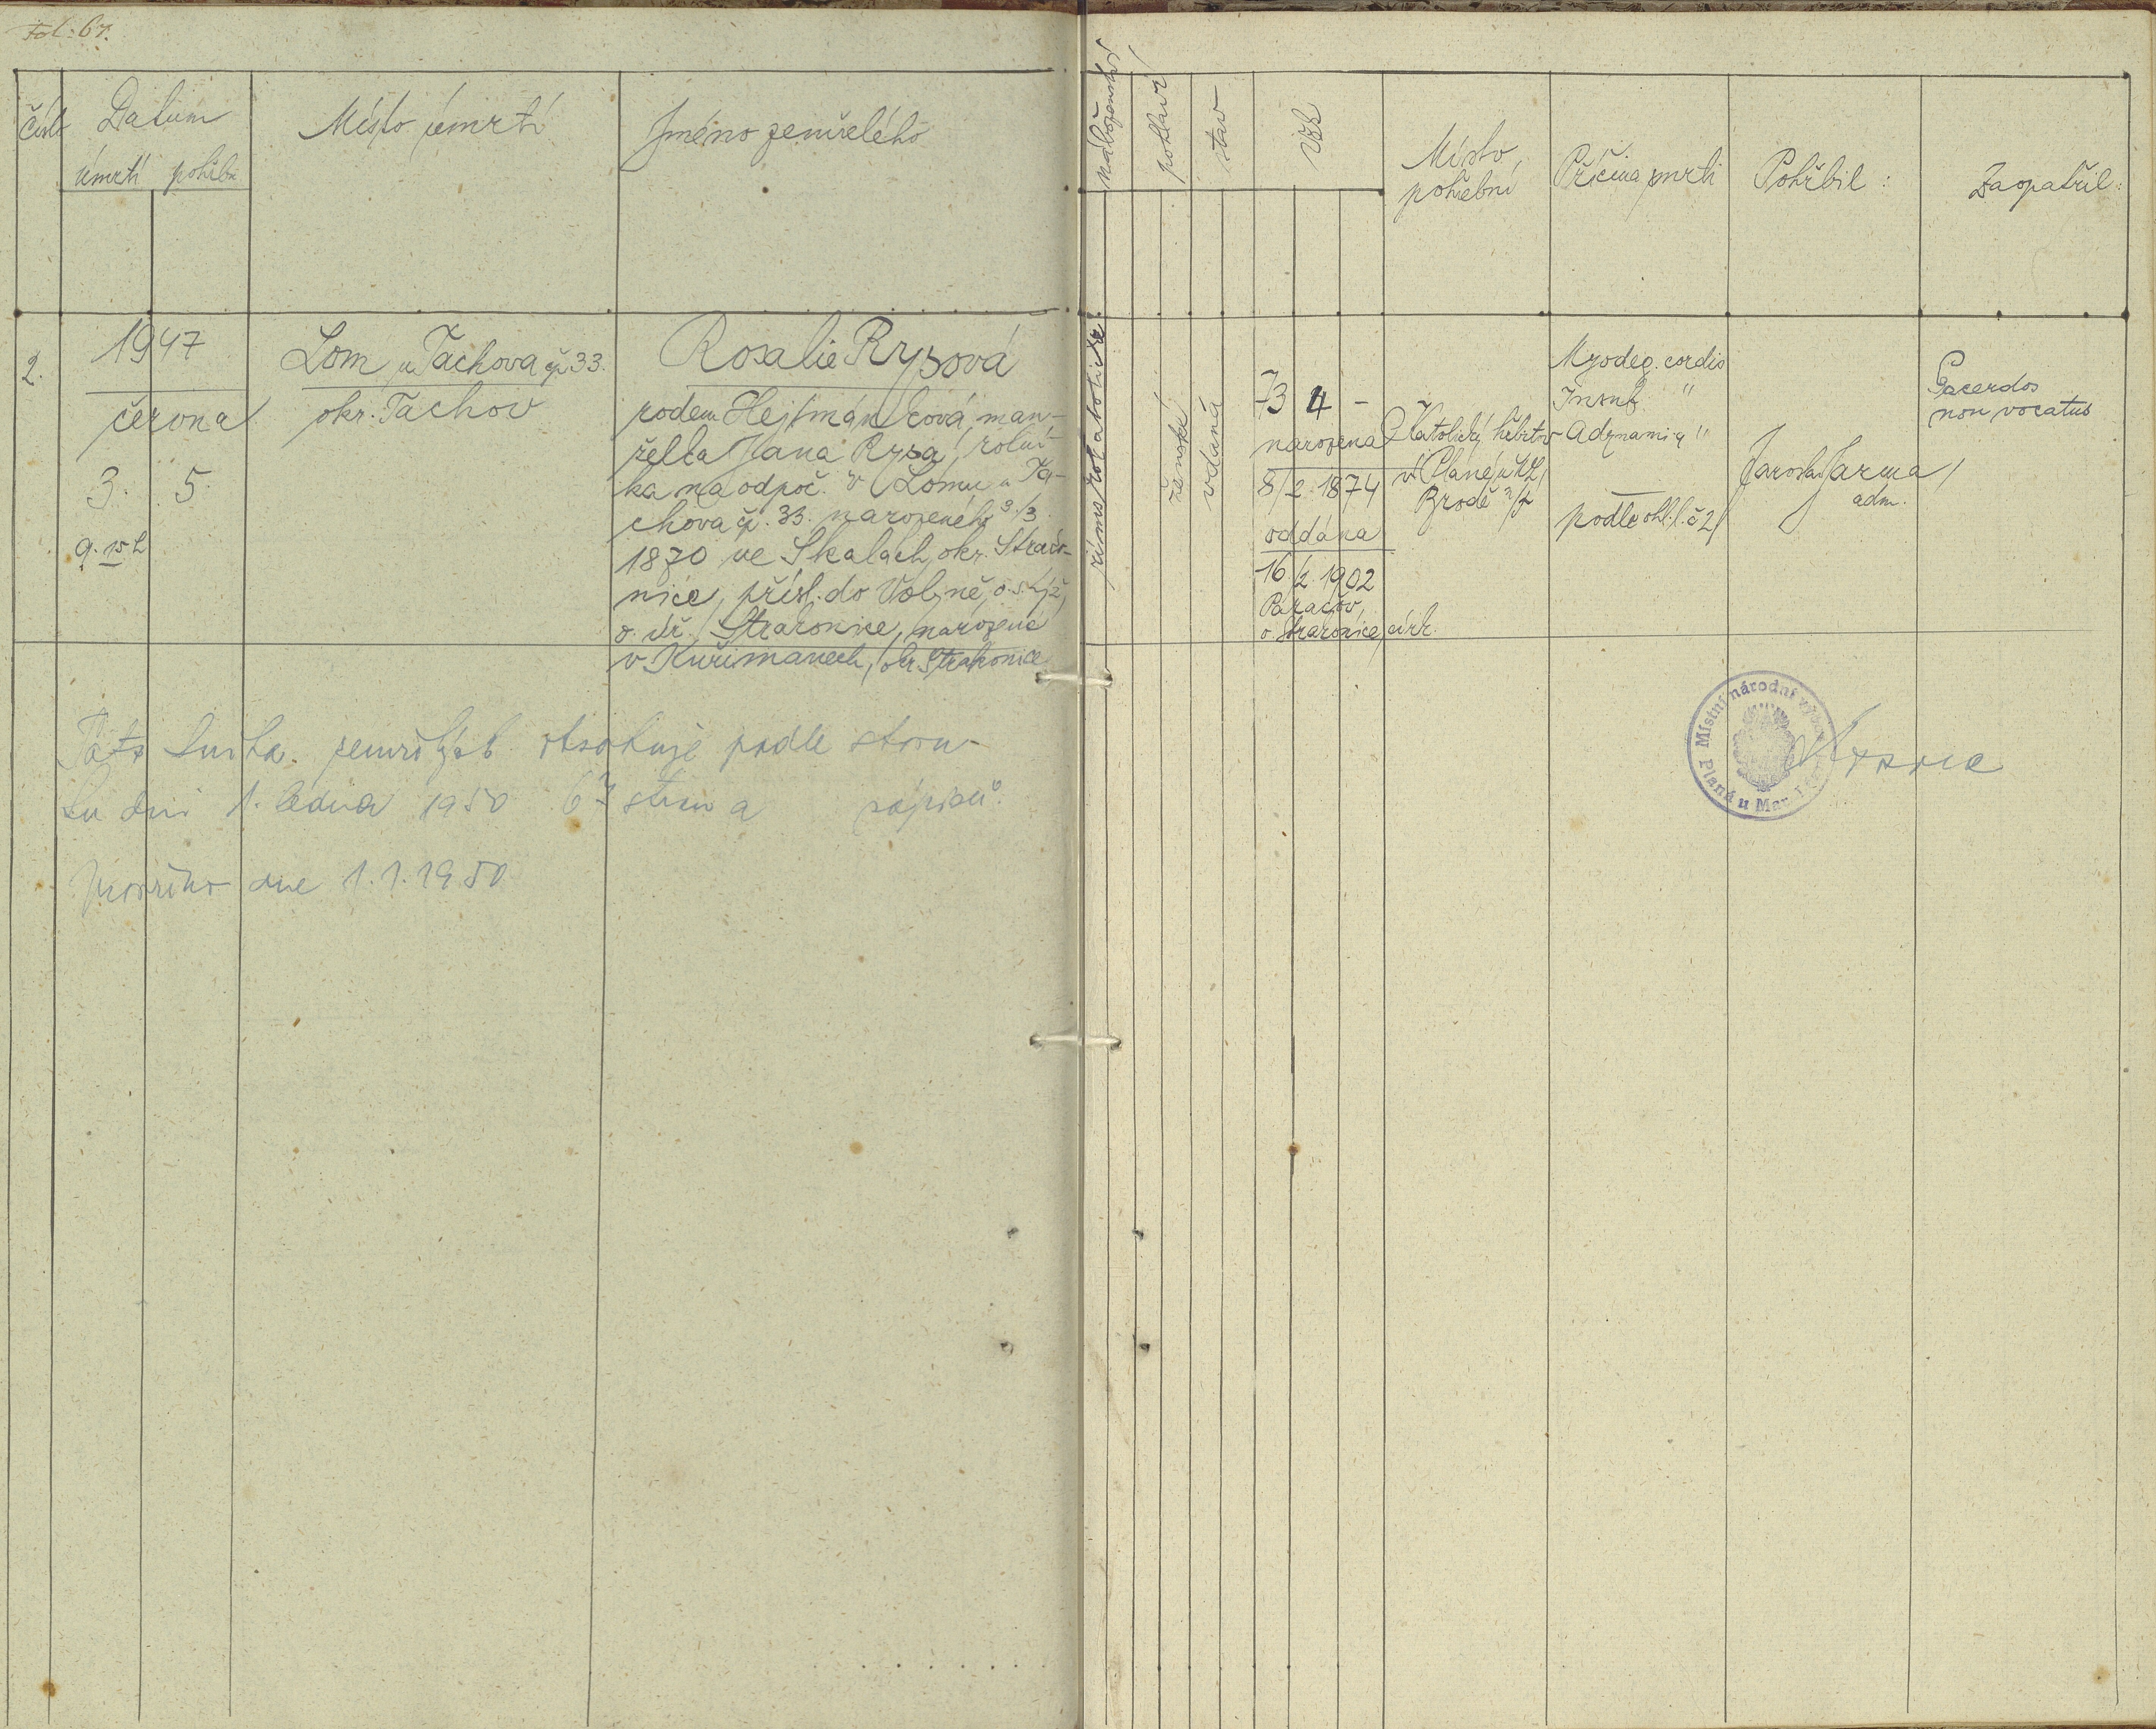 Fol. 67.
Číslo
Datum
úmrtí pohřbu
Místo úmrtí
Jméno zemřelého
náboženství
pohlaví
stav
Věk
Místo pohřební
Příčina smrti
Pohřbil :
Zaopatřil :
2.
1947
června
3. 5.
9. 15 h
Lom u Tachova čp. 33.
okr. Tachov
Rosalie Rysová
rodem Hejtmánková, man-
želka Jana Rysa, rolní-
ka na odpoč. v Lomu u Ta-
chova čp. 33. narozeného 3./3.
1870 ve Skalách, okr. Strako-
nice, přísl. do Volyně,
o. úř. Strakonice, narozená
v Kuřimanech, okr. Strakonice
římskokatolické
ženské
vdaná
73 4 -
narozena
8/2. 1874
oddána
16./2. 1902
Paračov,
o. Strakonice, círk.
Katolický hřbitov
v Plané u M. L.
Brodě n/T
Myodeg. cordis
Insuf. "
Adynamia "
podle ohl. l. č. 2/
Jaroslav Jarma
adm.
Sacerdos
non vocatus
Tato kniha zemřelých obsahuje podle stavu
ku dni 1. ledna 1950 67 stran a zápisů.
dne 1.1.1950
Místní národní výbor
Planá u Mar. Lázní